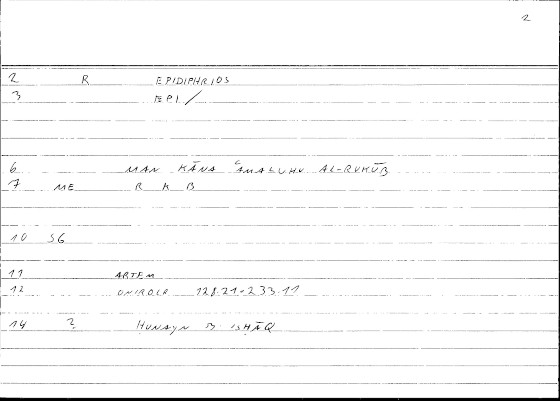 2
2 R EPIDIPHRIOS
3 EPI/
6 MAN KĀNA ʿAMALUHU AL-RUKŪB
7 ME R K B
10 SG
11 ARTEM
12 ONIROCR 128.21-233.11
14 ? ḤUNAYN B. ISḤĀQ